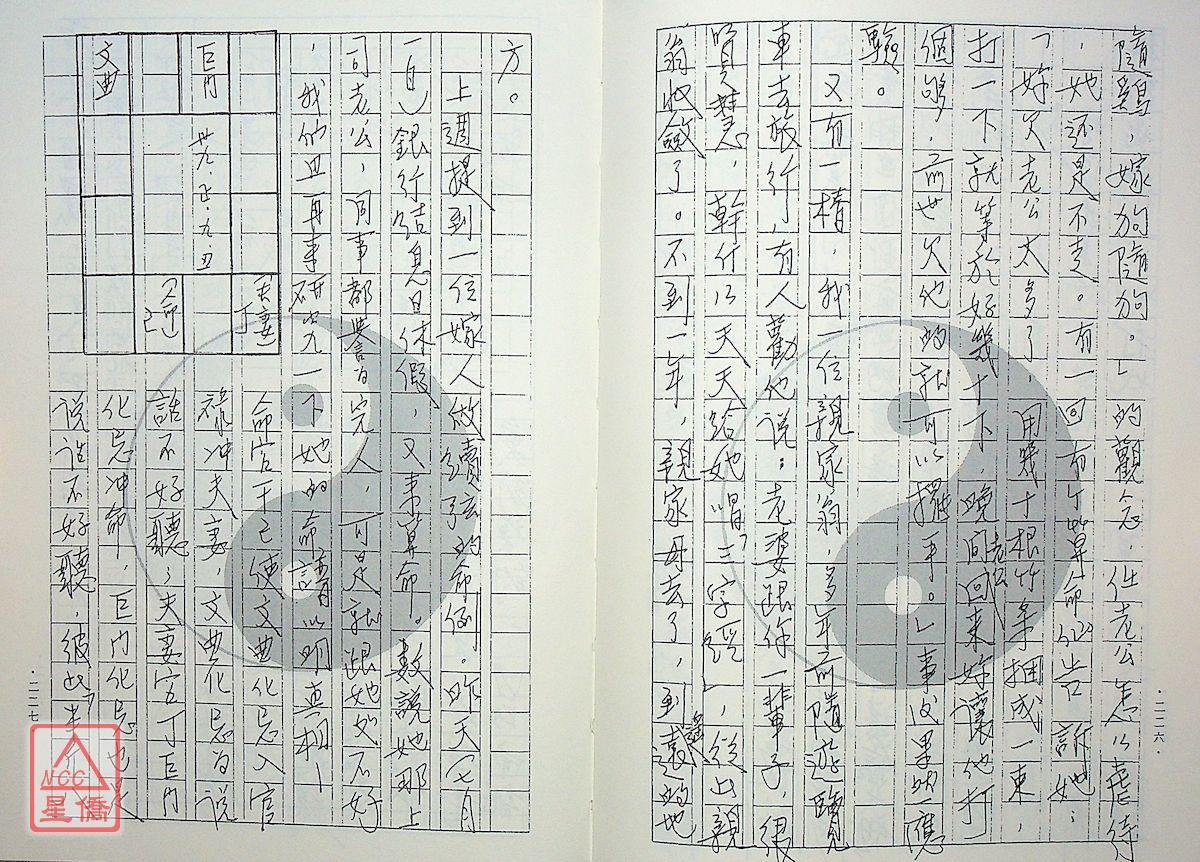 隨雞，嫁狗隨狗。」的觀念，任老公怎么虐待
，她還是不走。有一回有个算命仙告訴她：
「妳欠老公太多了，用幾十根竹条捆成一束，
打一下就等於好幾十下，晚間老公回來妳讓他打
個夠，前世欠他的就可以擺平。」事後果然應
驗。
又有一樁，我一位親家翁，多年前隨遊覽
車去旅行，有人勸他说：老婆跟你一輩子，很
賢慧，幹什么天天給她唱「三字經」，從此親
翁收斂了。不到一年，親家母去了，到遙遠的地
·二二六·
方。
上週提到一位嫁人做續弦的命例。昨天（七月
一日）銀行結息日休假，又來算命。數說她那上
司老公，同事都譽為完人，可是就跟她處不好
，我們且再事研究一下她的命譜以明真相——
夫妻
丁
巨門
廿八．正．九．丑
己
文曲
命宮干己使文曲化忌入官
祿冲夫妻，文曲化忌為说
話不好聽；夫妻宮丁巨門
化忌冲命，巨門化忌也是
说话不好聽，彼此「半斤八
·二二七·
NCC
星僑